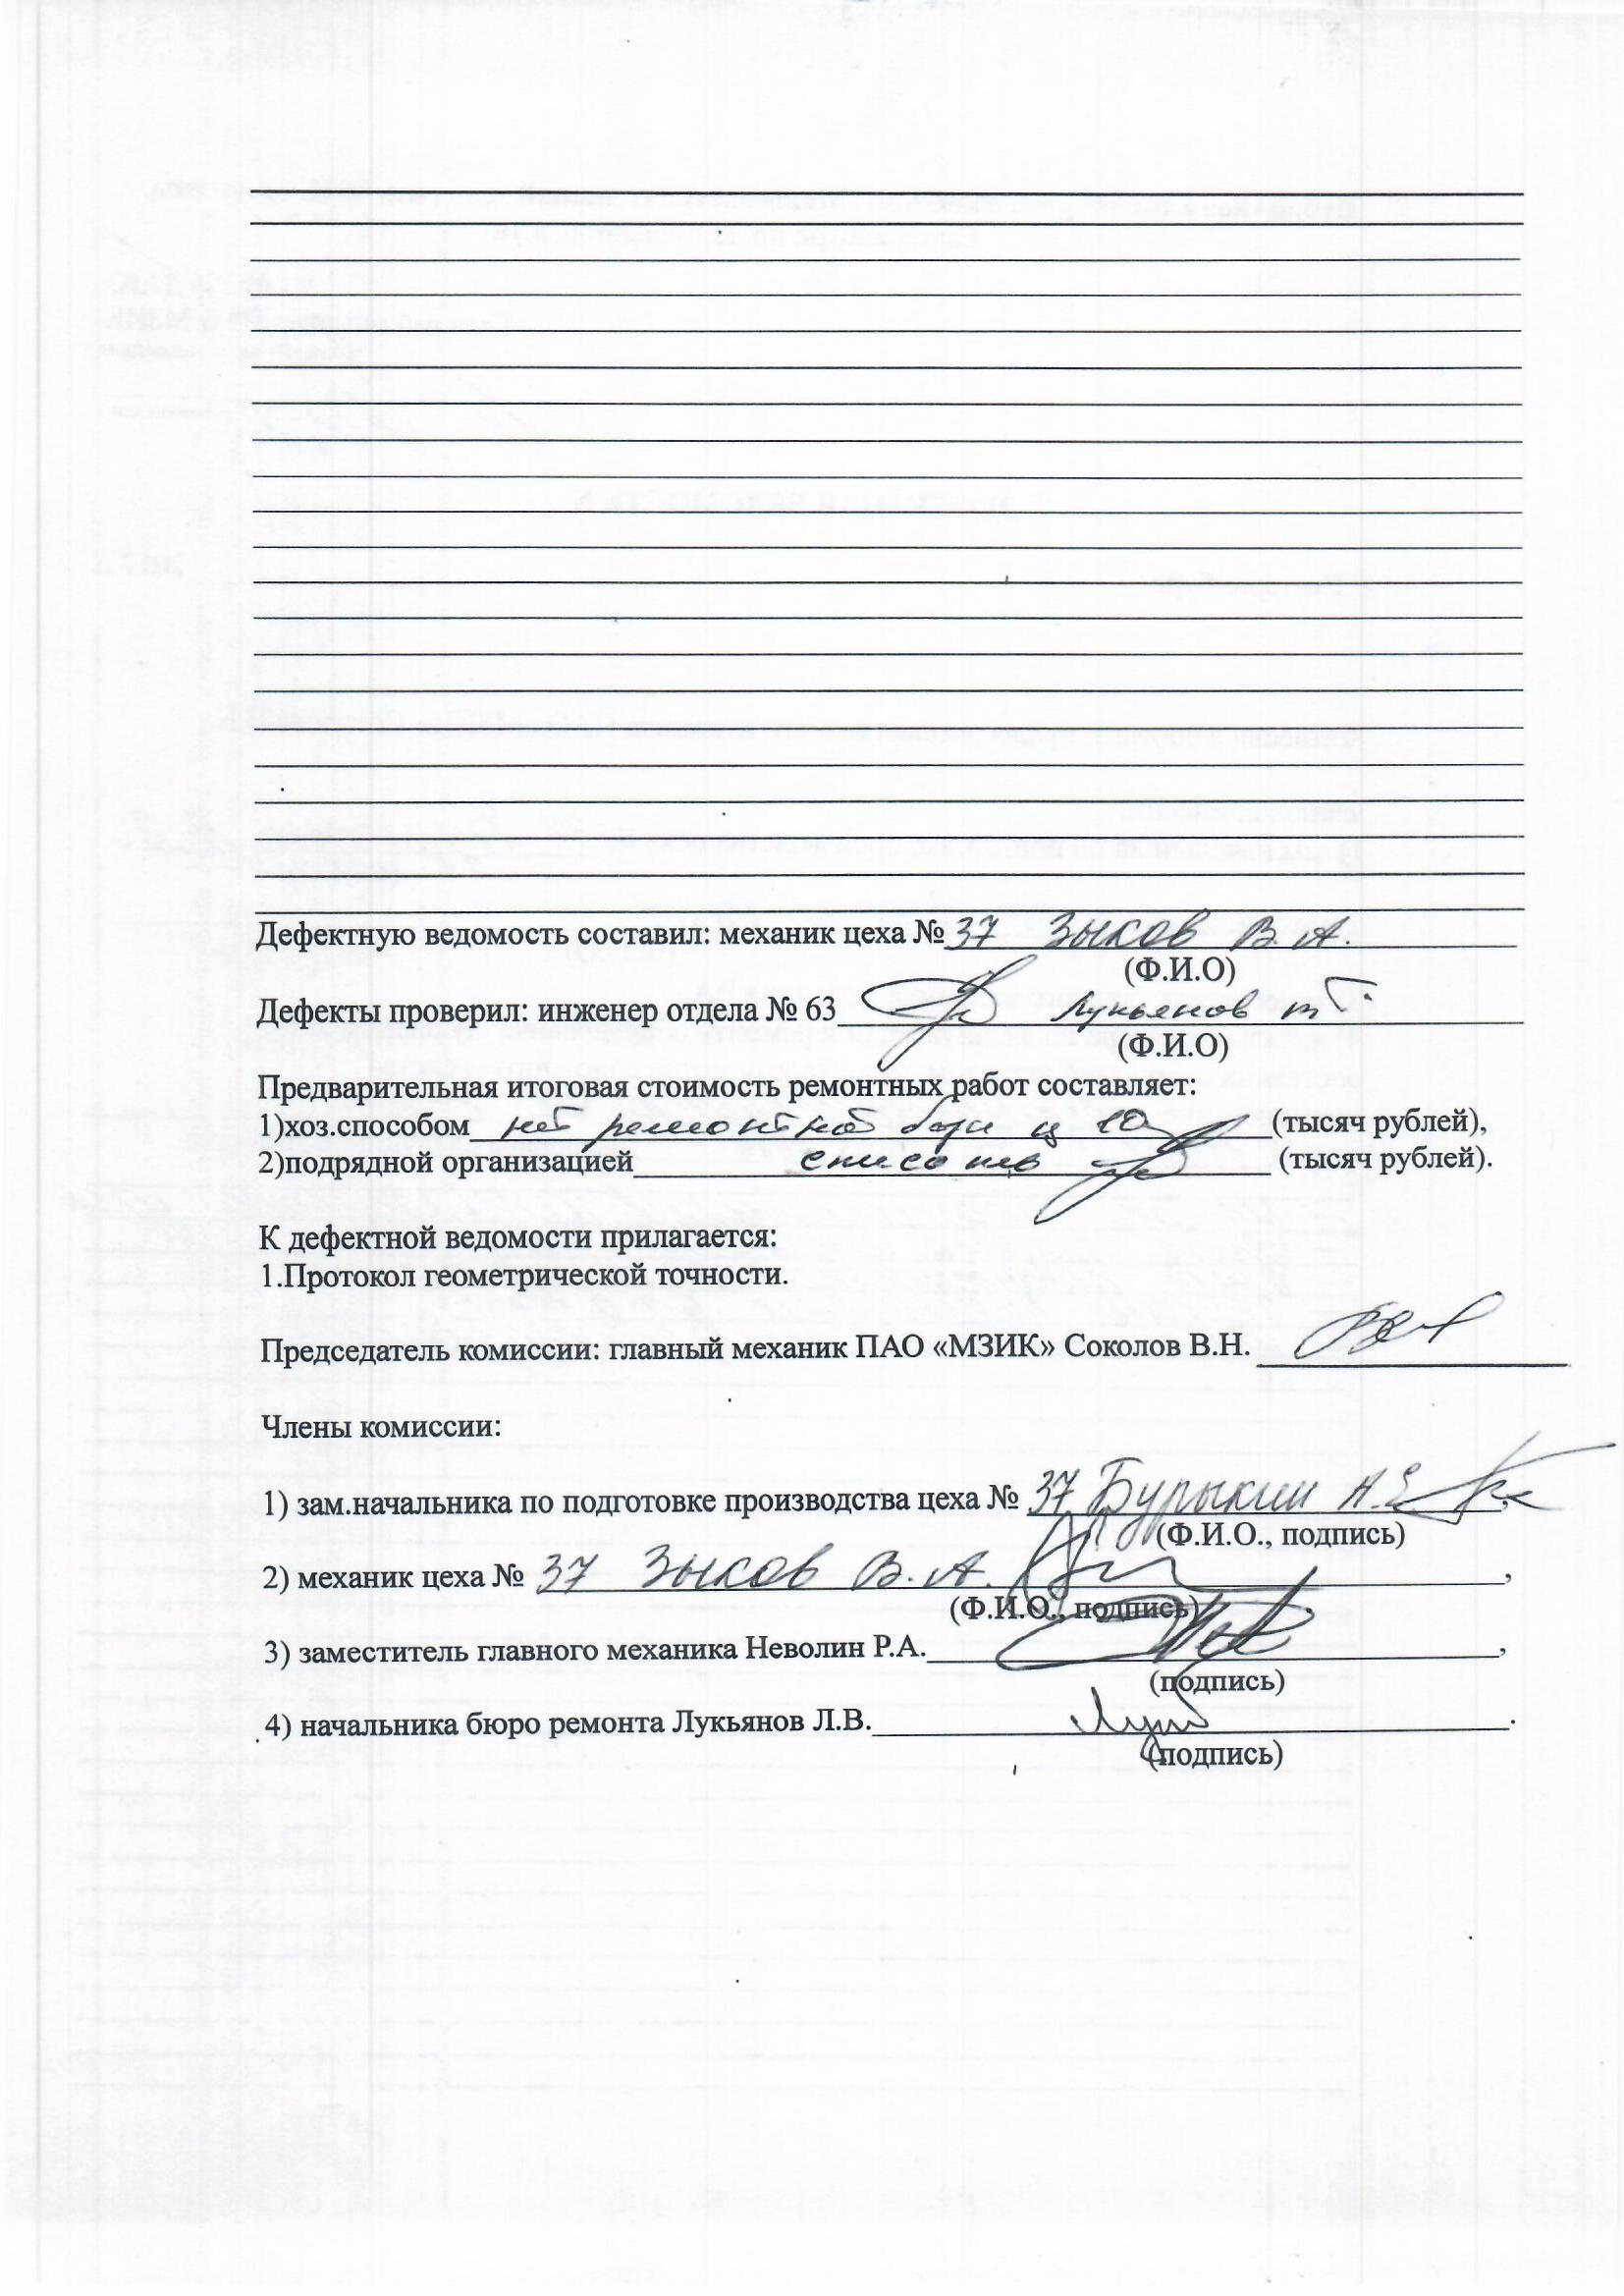 Дефектную ведомость составил: механик цеха № 37 Зыков В.А.
(Ф.И.О)
Дефекты проверил: инженер отдела № 63 Лукьянов
(Ф.И.О)
Предварительная итоговая стоимость ремонтных работ составляет:
1)хоз.способом нет ремонтной (тысяч рублей),
2)подрядной организацией (тысяч рублей).
К дефектной ведомости прилагается:
1.Протокол геометрической точности.
Председатель комиссии: главный механик ПАО «МЗИК» Соколов В.Н.
Члены комиссии:
1) зам.начальника по подготовке производства цеха № 37 Бурыкин А.Е.,
(Ф.И.О., подпись)
2) механик цеха № 37 Зыков В.А. ,
(Ф.И.О., подпись)
3) заместитель главного механика Неволин Р.А. ,
(подпись)
4) начальника бюро ремонта Лукьянов Л.В. .
(подпись)